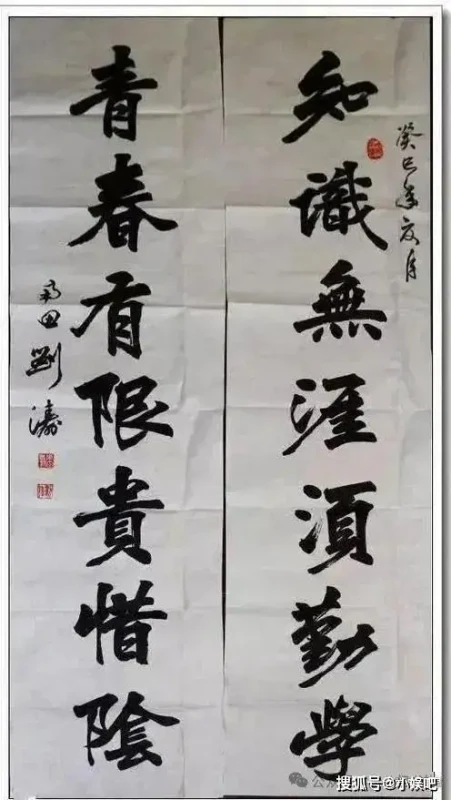 癸巳年夏月
知識無涯湏勤學
青春有限貴惜陰
田劉濤
搜狐号@小娱吧